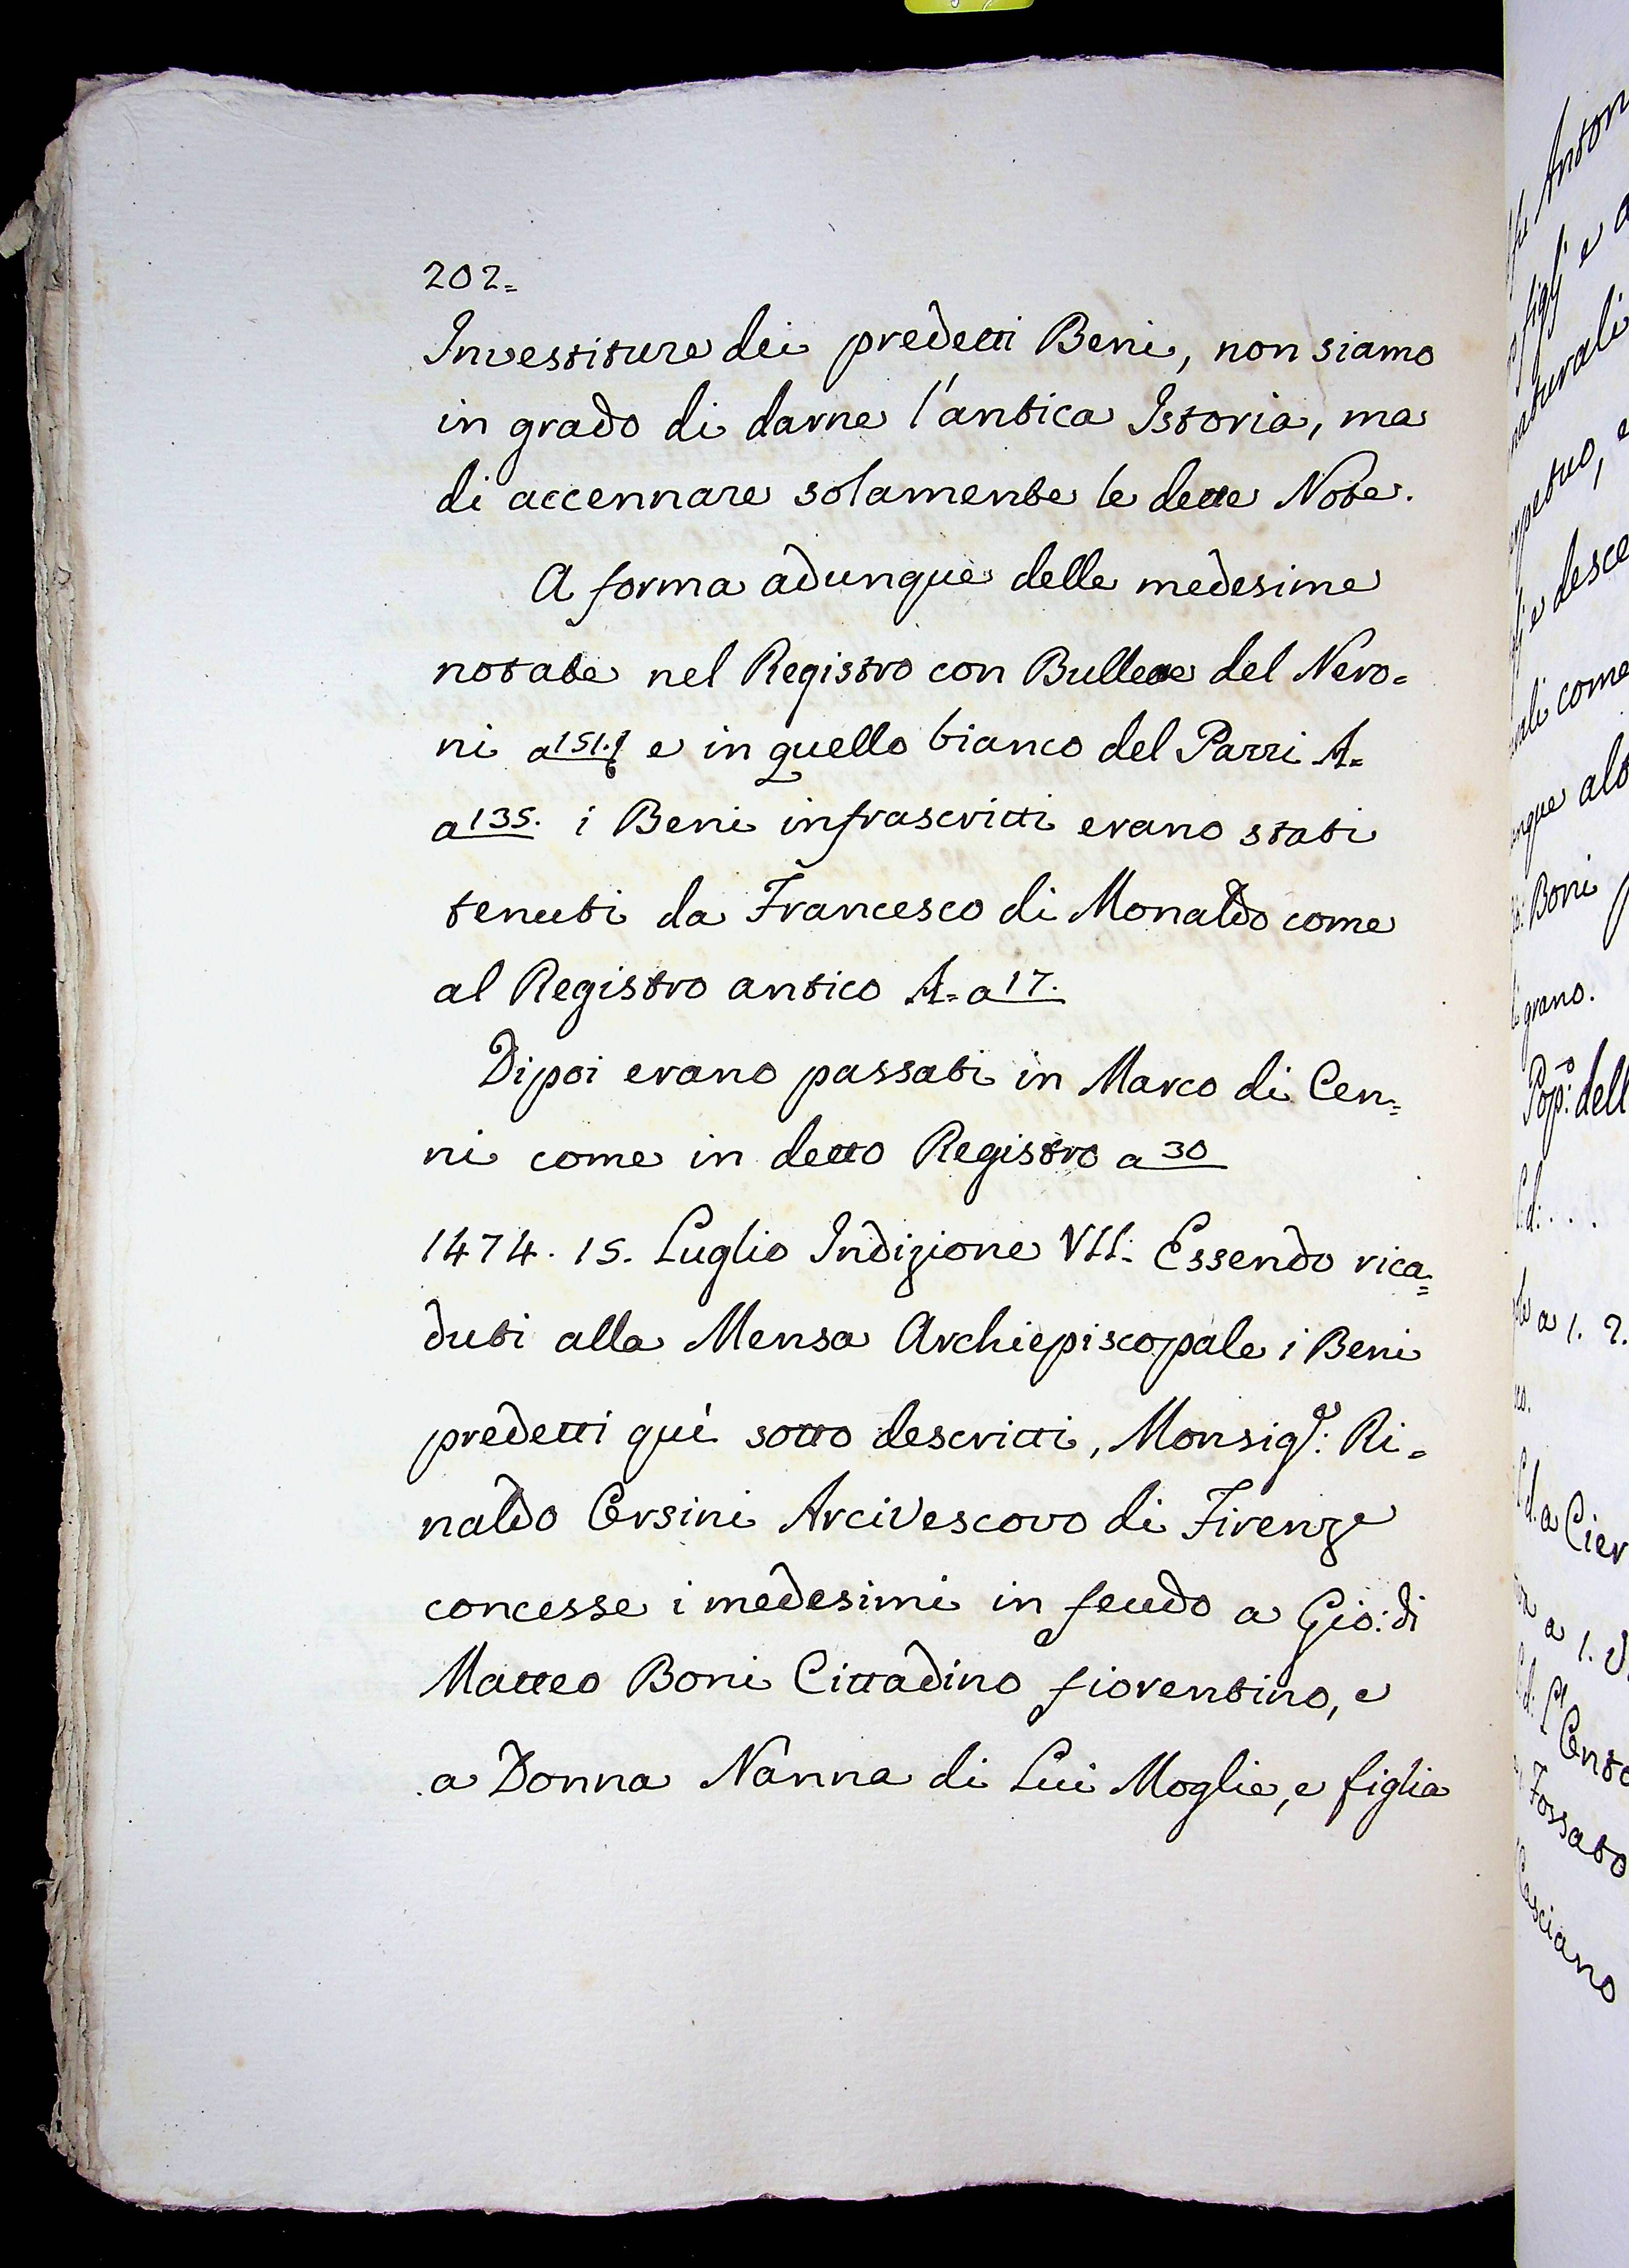 202=
Investiture dei predetti Beni, non siamo
in grado di darne l'antica Istoria, ma
di accennare solamente le dette Note.
A forma adunque delle medesime
notate nel Registro con Bullette del Nero=
ni a 151. e in quello bianco del Parri A=
a 135. i Beni infrascritti erano stati
tenuti da Francesco di Monaldo come
al Registro antico A= a 17.
Dipoi erano passati in Marco di Cen=
ni come in detto Registro a 30
1474. 15. Luglio Indizione VII. Essendo rica=
duti alla Mensa Archiepiscopale i Beni
predetti quì sotto descritti, Monsigr: Ri=
naldo Orsini Arcivescovo di Firenze
concesse i medesimi in feudo a Gio: di
Matteo Boni Cittadino fiorentino, e
a Donna Nanna di Lui Moglie, e figlia
Anton
figlj e
naturali
e desce
come
Boni
grano.
Popo: dell
a 1. 2.
a Cier
a 1.
Fossato
Casciano